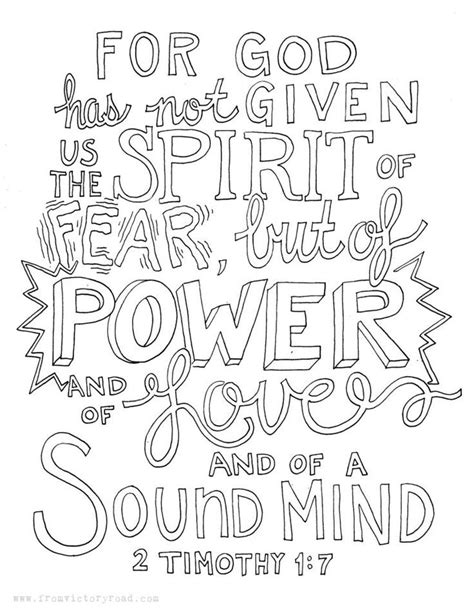 FOR GOD
has not GIVEN
US THE SPIRIT OF
FEAR, but of
POWER
AND OF Love
AND OF A
SOUND MIND
2 TIMOTHY 1:7
www.fromvictoryroad.com